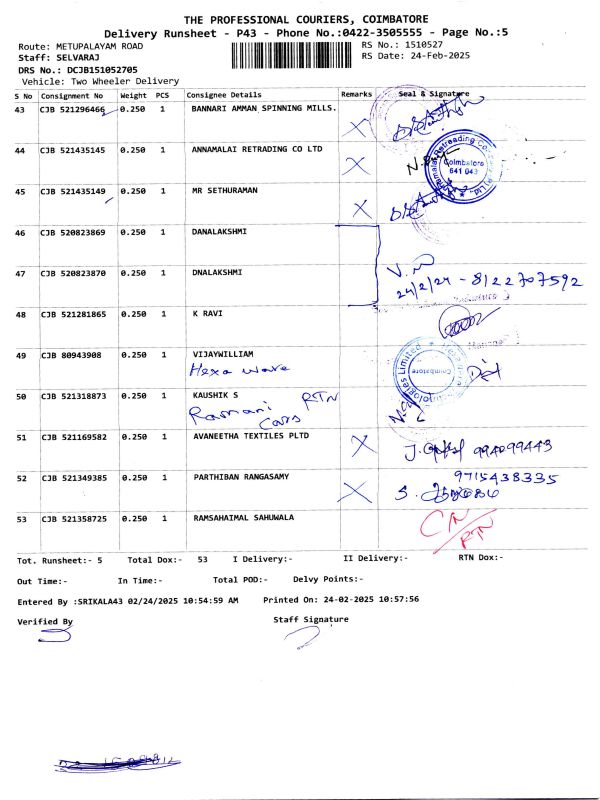 THE PROFESSIONAL COURIERS, COIMBATORE
Delivery Runsheet - P43 - Phone No.:0422-3505555 - Page No.:5
Route: METUPALAYAM ROAD RS No.: 1510527
Staff: SELVARAJ RS Date: 24-Feb-2025
DRS No.: DCJB151052705
Vehicle: Two Wheeler Delivery
S No Consignment No Weight PCS Consignee Details Remarks Seal & Signature
43 CJB 521296466 0.250 1 BANNARI AMMAN SPINNING MILLS.
44 CJB 521435145 0.250 1 ANNAMALAI RETRADING CO LTD
Coimbatore
641 043
45 CJB 521435149 0.250 1 MR SETHURAMAN
46 CJB 520823869 0.250 1 DANALAKSHMI
47 CJB 520823870 0.250 1 DNALAKSHMI
24/2/24 - 8122707592
48 CJB 521281865 0.250 1 K RAVI
49 CJB 80943908 0.250 1 VIJAYWILLIAM
Hexa ware
Coimbatore
50 CJB 521318873 0.250 1 KAUSHIK S RTN
Ramani
Cars
51 CJB 521169582 0.250 1 AVANEETHA TEXTILES PLTD
994099443
52 CJB 521349385 0.250 1 PARTHIBAN RANGASAMY 9715438335
53 CJB 521358725 0.250 1 RAMSAHAIMAL SAHUWALA C/N
RTN
Tot. Runsheet:- 5 Total Dox:- 53 I Delivery:- II Delivery:- RTN Dox:-
Out Time:- In Time:- Total POD:- Delvy Points:-
Entered By :SRIKALA43 02/24/2025 10:54:59 AM Printed On: 24-02-2025 10:57:56
Verified By Staff Signature